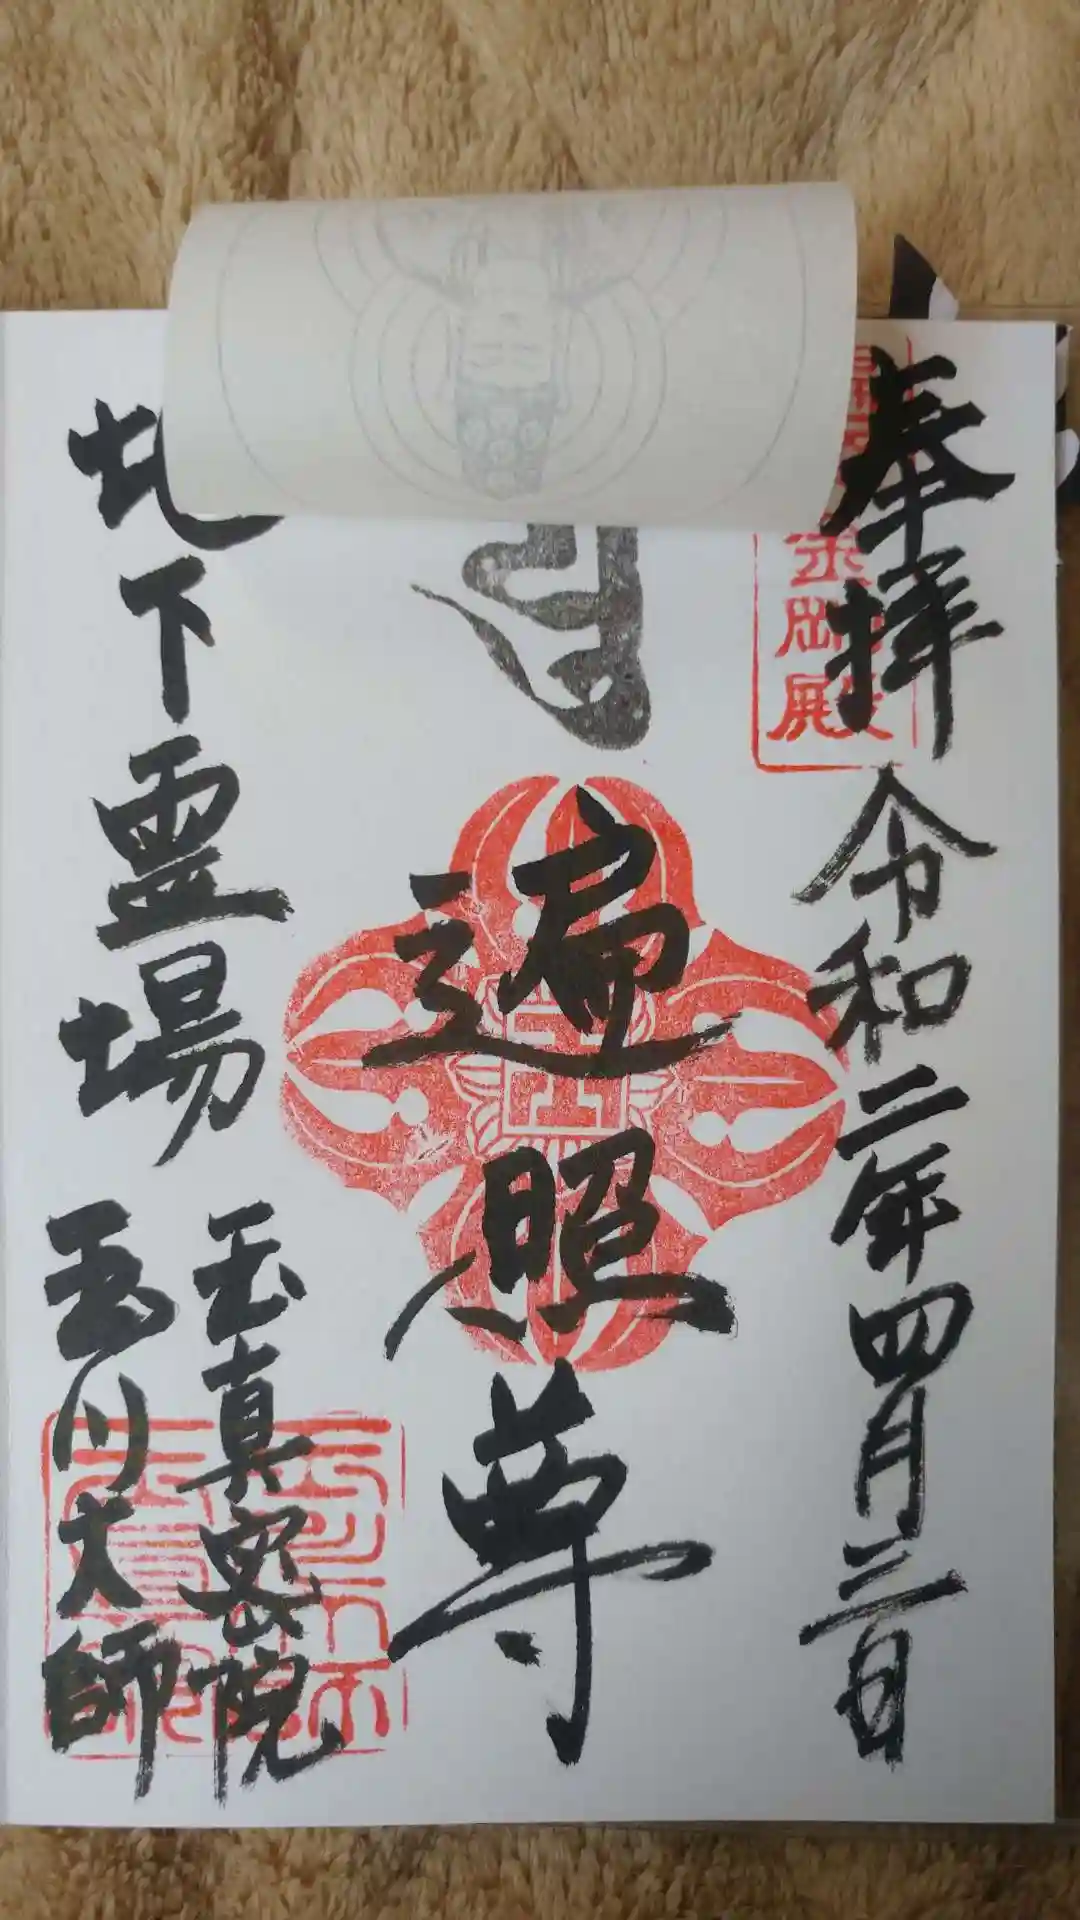 奉拝 令和二年四月三日
金剛殿
遍照尊
地下霊場
玉真密院
玉川大師